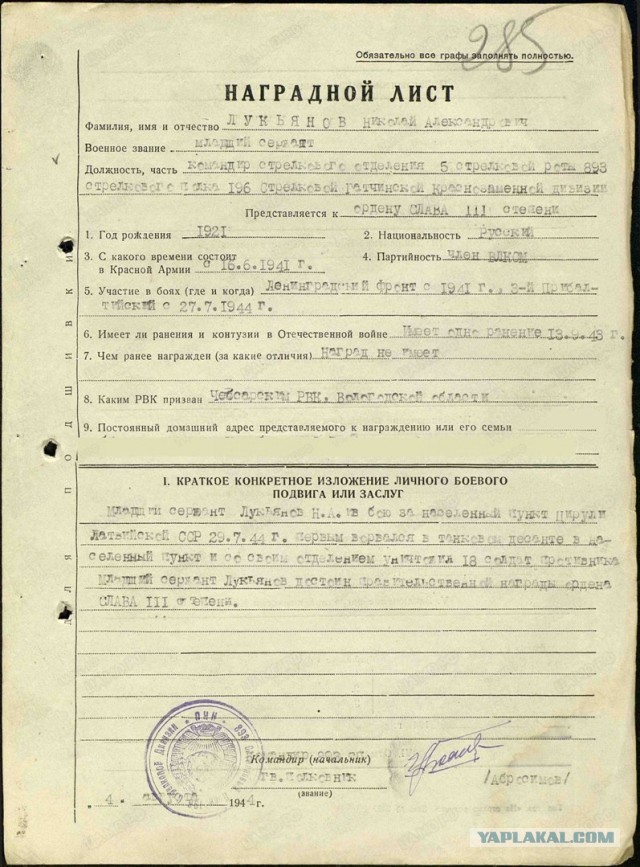 285
Обязательно все графы заполнять полностью.
НАГРАДНОЙ ЛИСТ
Фамилия, имя и отчество ЛУКЬЯНОВ Николай Александрович
Военное звание младший сержант
Должность, часть командир стрелкового отделения 5 стрелковой роты 893
стрелкового полка 196 Стрелковой Гатчинской Краснознаменной дивизии
Представляется к ордену СЛАВА III степени
1. Год рождения 1921 2. Национальность Русский
3. С какого времени состоит
в Красной Армии с 16.6.1941 г. 4. Партийность Член ВЛКСМ
5. Участие в боях (где и когда) Ленинградский фронт с 1941 г., 3-й Прибал-
тийский с 27.7.1944 г.
6. Имеет ли ранения и контузии в Отечественной войне Имеет одно ранение 13.9.43 г.
7. Чем ранее награжден (за какие отличия) Наград не имеет
8. Каким РВК призван Чебсарским РВК, Вологодской области
9. Постоянный домашний адрес представляемого к награждению или его семьи
ДЛЯ ПОДШИВКИ
I. КРАТКОЕ КОНКРЕТНОЕ ИЗЛОЖЕНИЕ ЛИЧНОГО БОЕВОГО
ПОДВИГА ИЛИ ЗАСЛУГ
Младший сержант Лукьянов Н.А. в бою за населенный пункт Цирули
Латвийской ССР 29.7.44 г. первым ворвался в танковом десанте в на-
селенный пункт и со своим отделением уничтожил 18 солдат противника
Младший сержант Лукьянов достоин правительственной награды ордена
СЛАВА III степени.
Командир (начальник)
Гв. полковник
(звание)
/Абросимов/
"4" августа 1944 г.
YAPLAKAL.COM